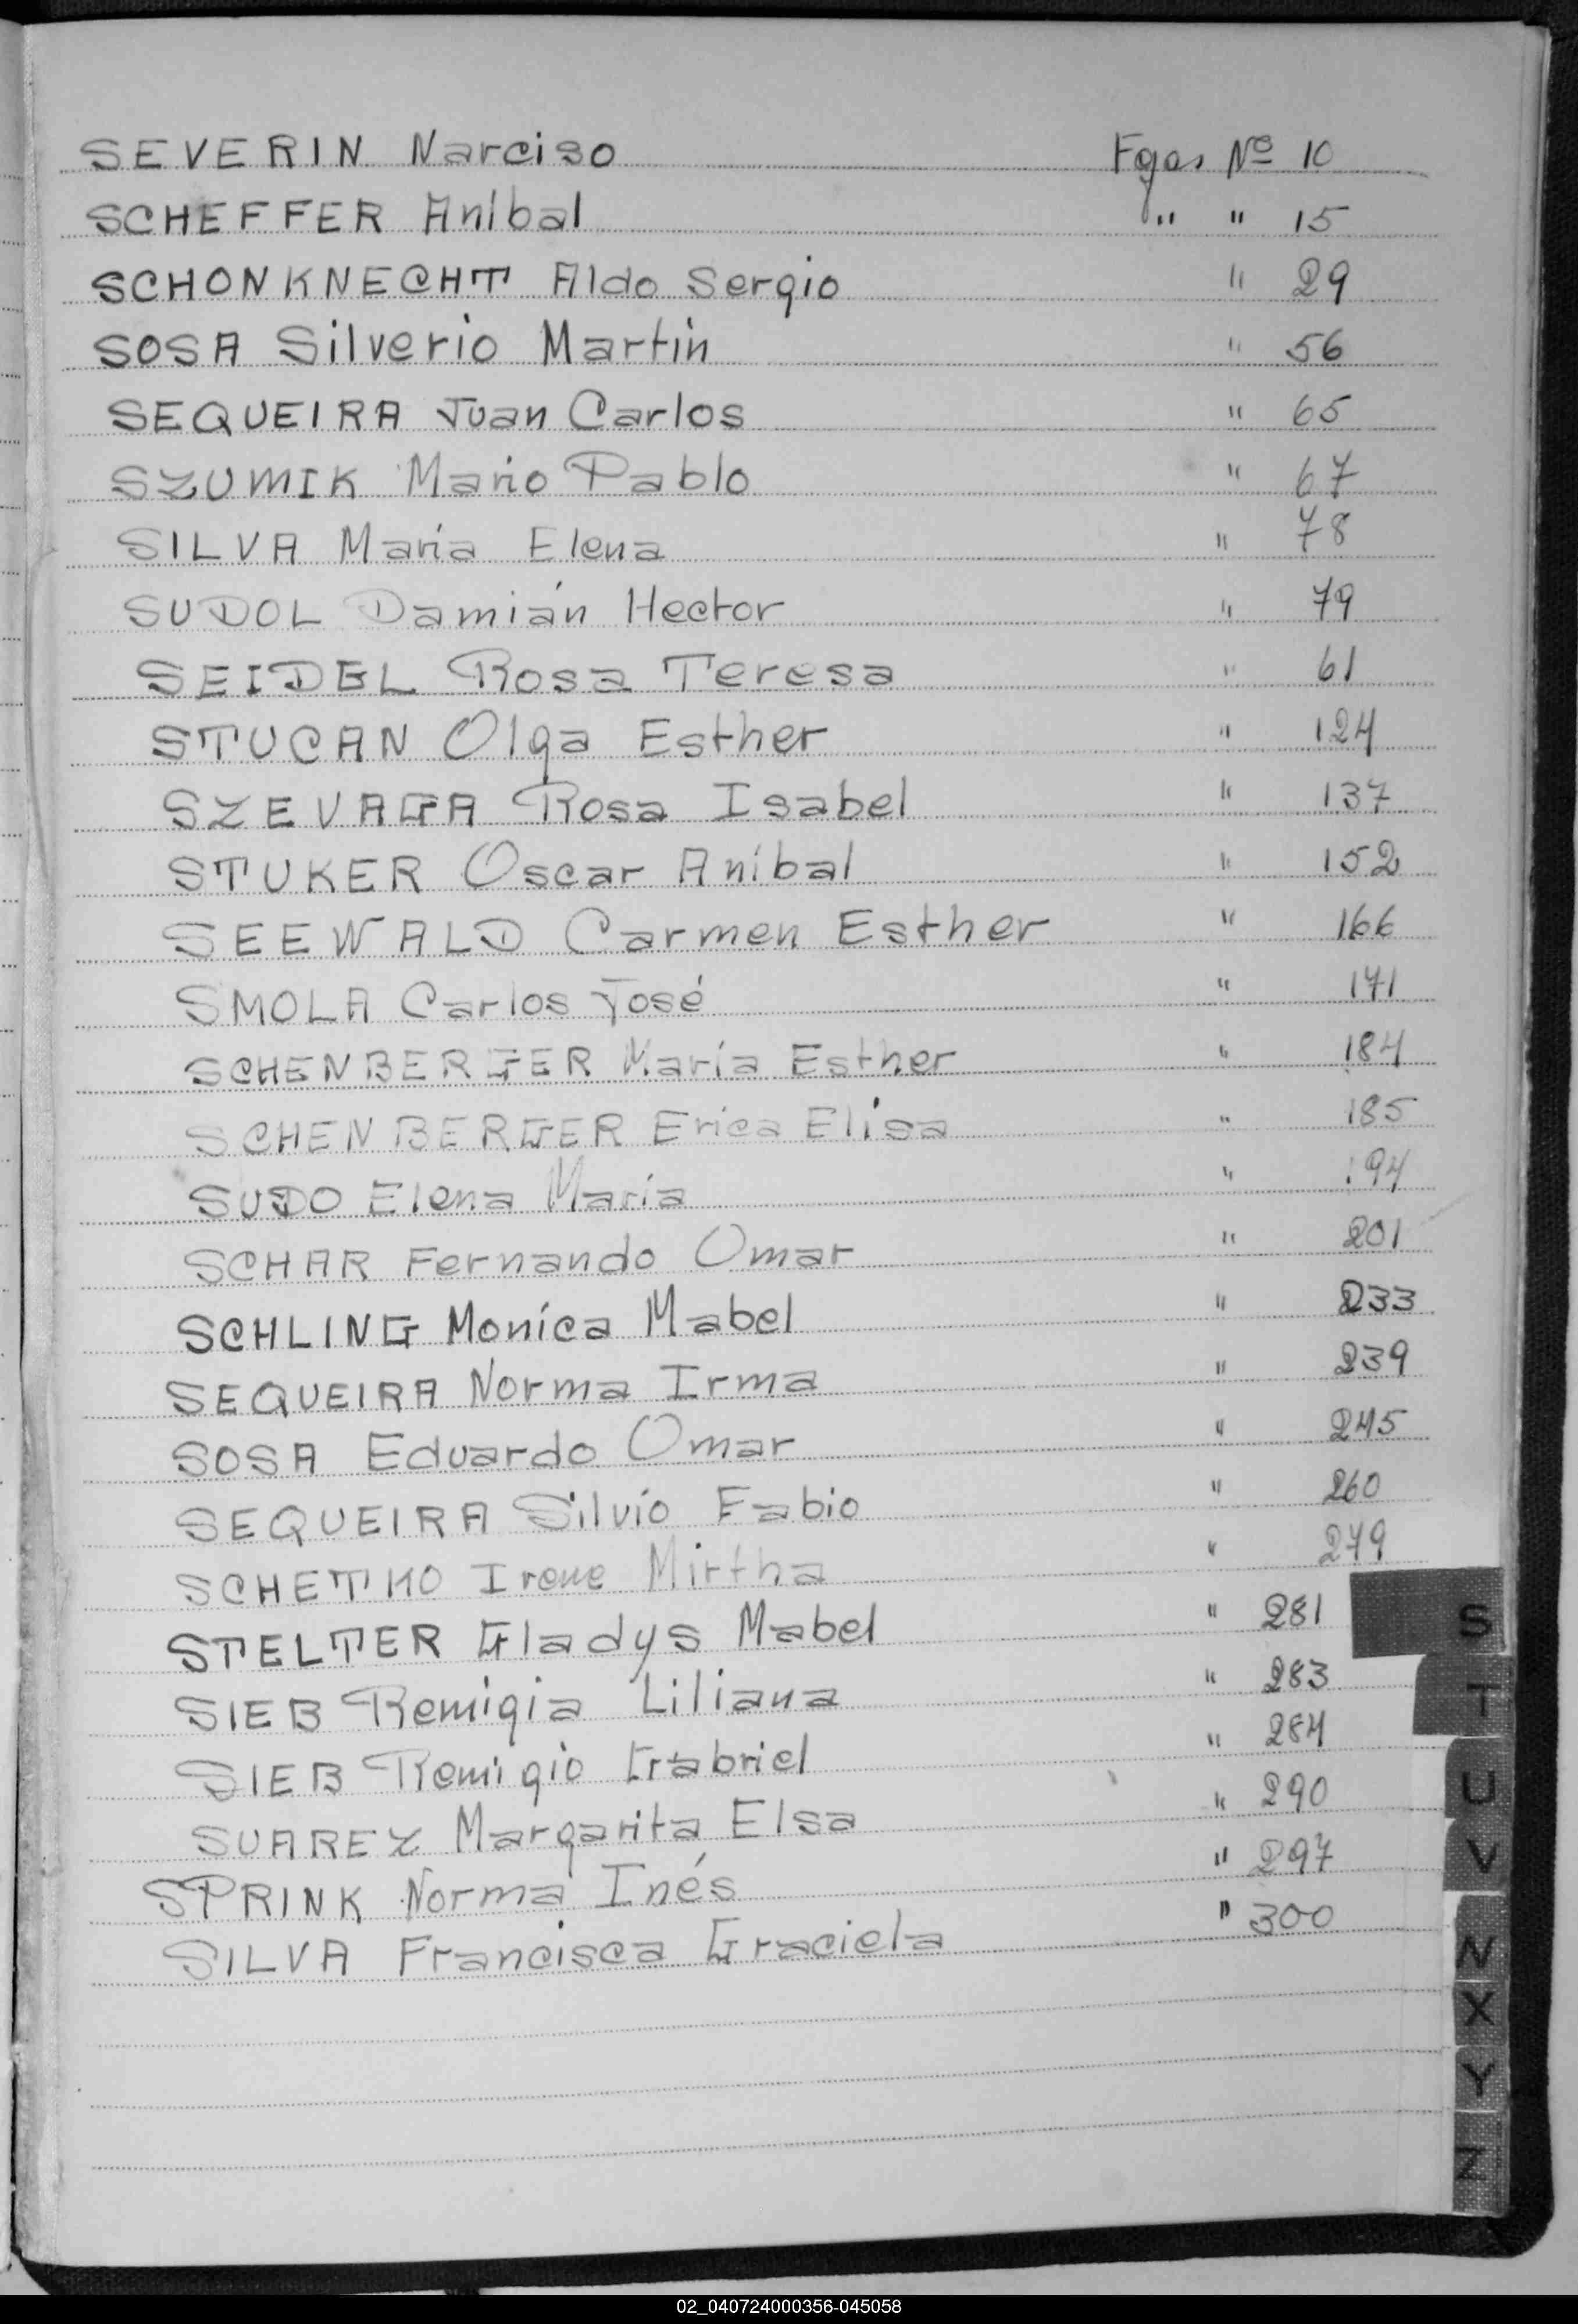 SEVERIN Narciso Fojas Nº 10
SCHEFFER Anibal " " 15
SCHONKNECHT Aldo Sergio " 29
SOSA Silverio Martin " 56
SEQUEIRA Juan Carlos " 65
SZUMIK Mario Pablo " 67
SILVA Maria Elena " 78
SUDOL Damián Hector " 79
SEIDEL Rosa Teresa " 61
STUCAN Olga Esther " 124
SZEVAGA Rosa Isabel " 137
STUKER Oscar Anibal " 152
SEEWALD Carmen Esther " 166
SMOLA Carlos José " 171
SCHENBERGER María Esther " 184
SCHENBERGER Erica Elisa " 185
SUDO Elena María " 194
SCHAR Fernando Omar " 201
SCHLING Monica Mabel " 233
SEQUEIRA Norma Irma " 239
SOSA Eduardo Omar " 245
SEQUEIRA Silvio Fabio " 260
Irene Mirtha " 279
STELTER Gladys Mabel " 281
SIEB Remigia Liliana " 283
SIEB Remigio Gabriel " 284
SUAREZ Margarita Elsa " 290
SPRINK Norma Inés " 297
SILVA Francisca Graciela " 300
S
T
U
V
X
Y
Z
02_040724000356-045058